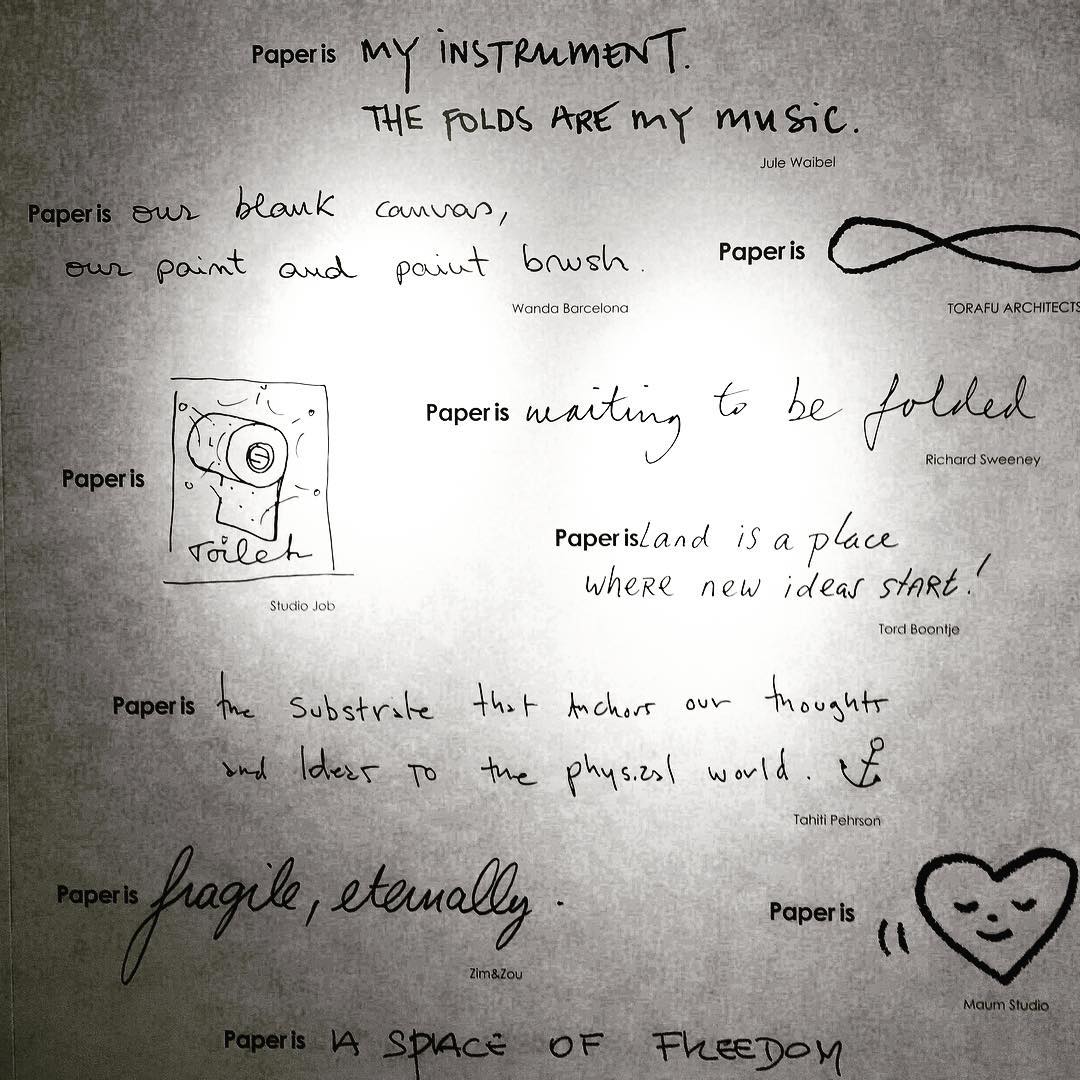 Paper is MY INSTRUMENT.
THE FOLDS ARE MY MUSIC.
Jule Waibel
Paper is our blank canvas,
our paint and paint brush.
Wanda Barcelona
Paper is
TORAFU ARCHITECTS
Paper is waiting to be folded
Richard Sweeney
Paper is
Toilet
Studio Job
Paper is Land is a place
where new ideas START!
Tord Boontje
Paper is the Substrate that Anchors our thoughts
and Ideas TO the physical world.
Tahiti Pehrson
Paper is fragile, eternally.
Zim&Zou
Paper is
Maum Studio
Paper is A SPACE OF FREEDOM